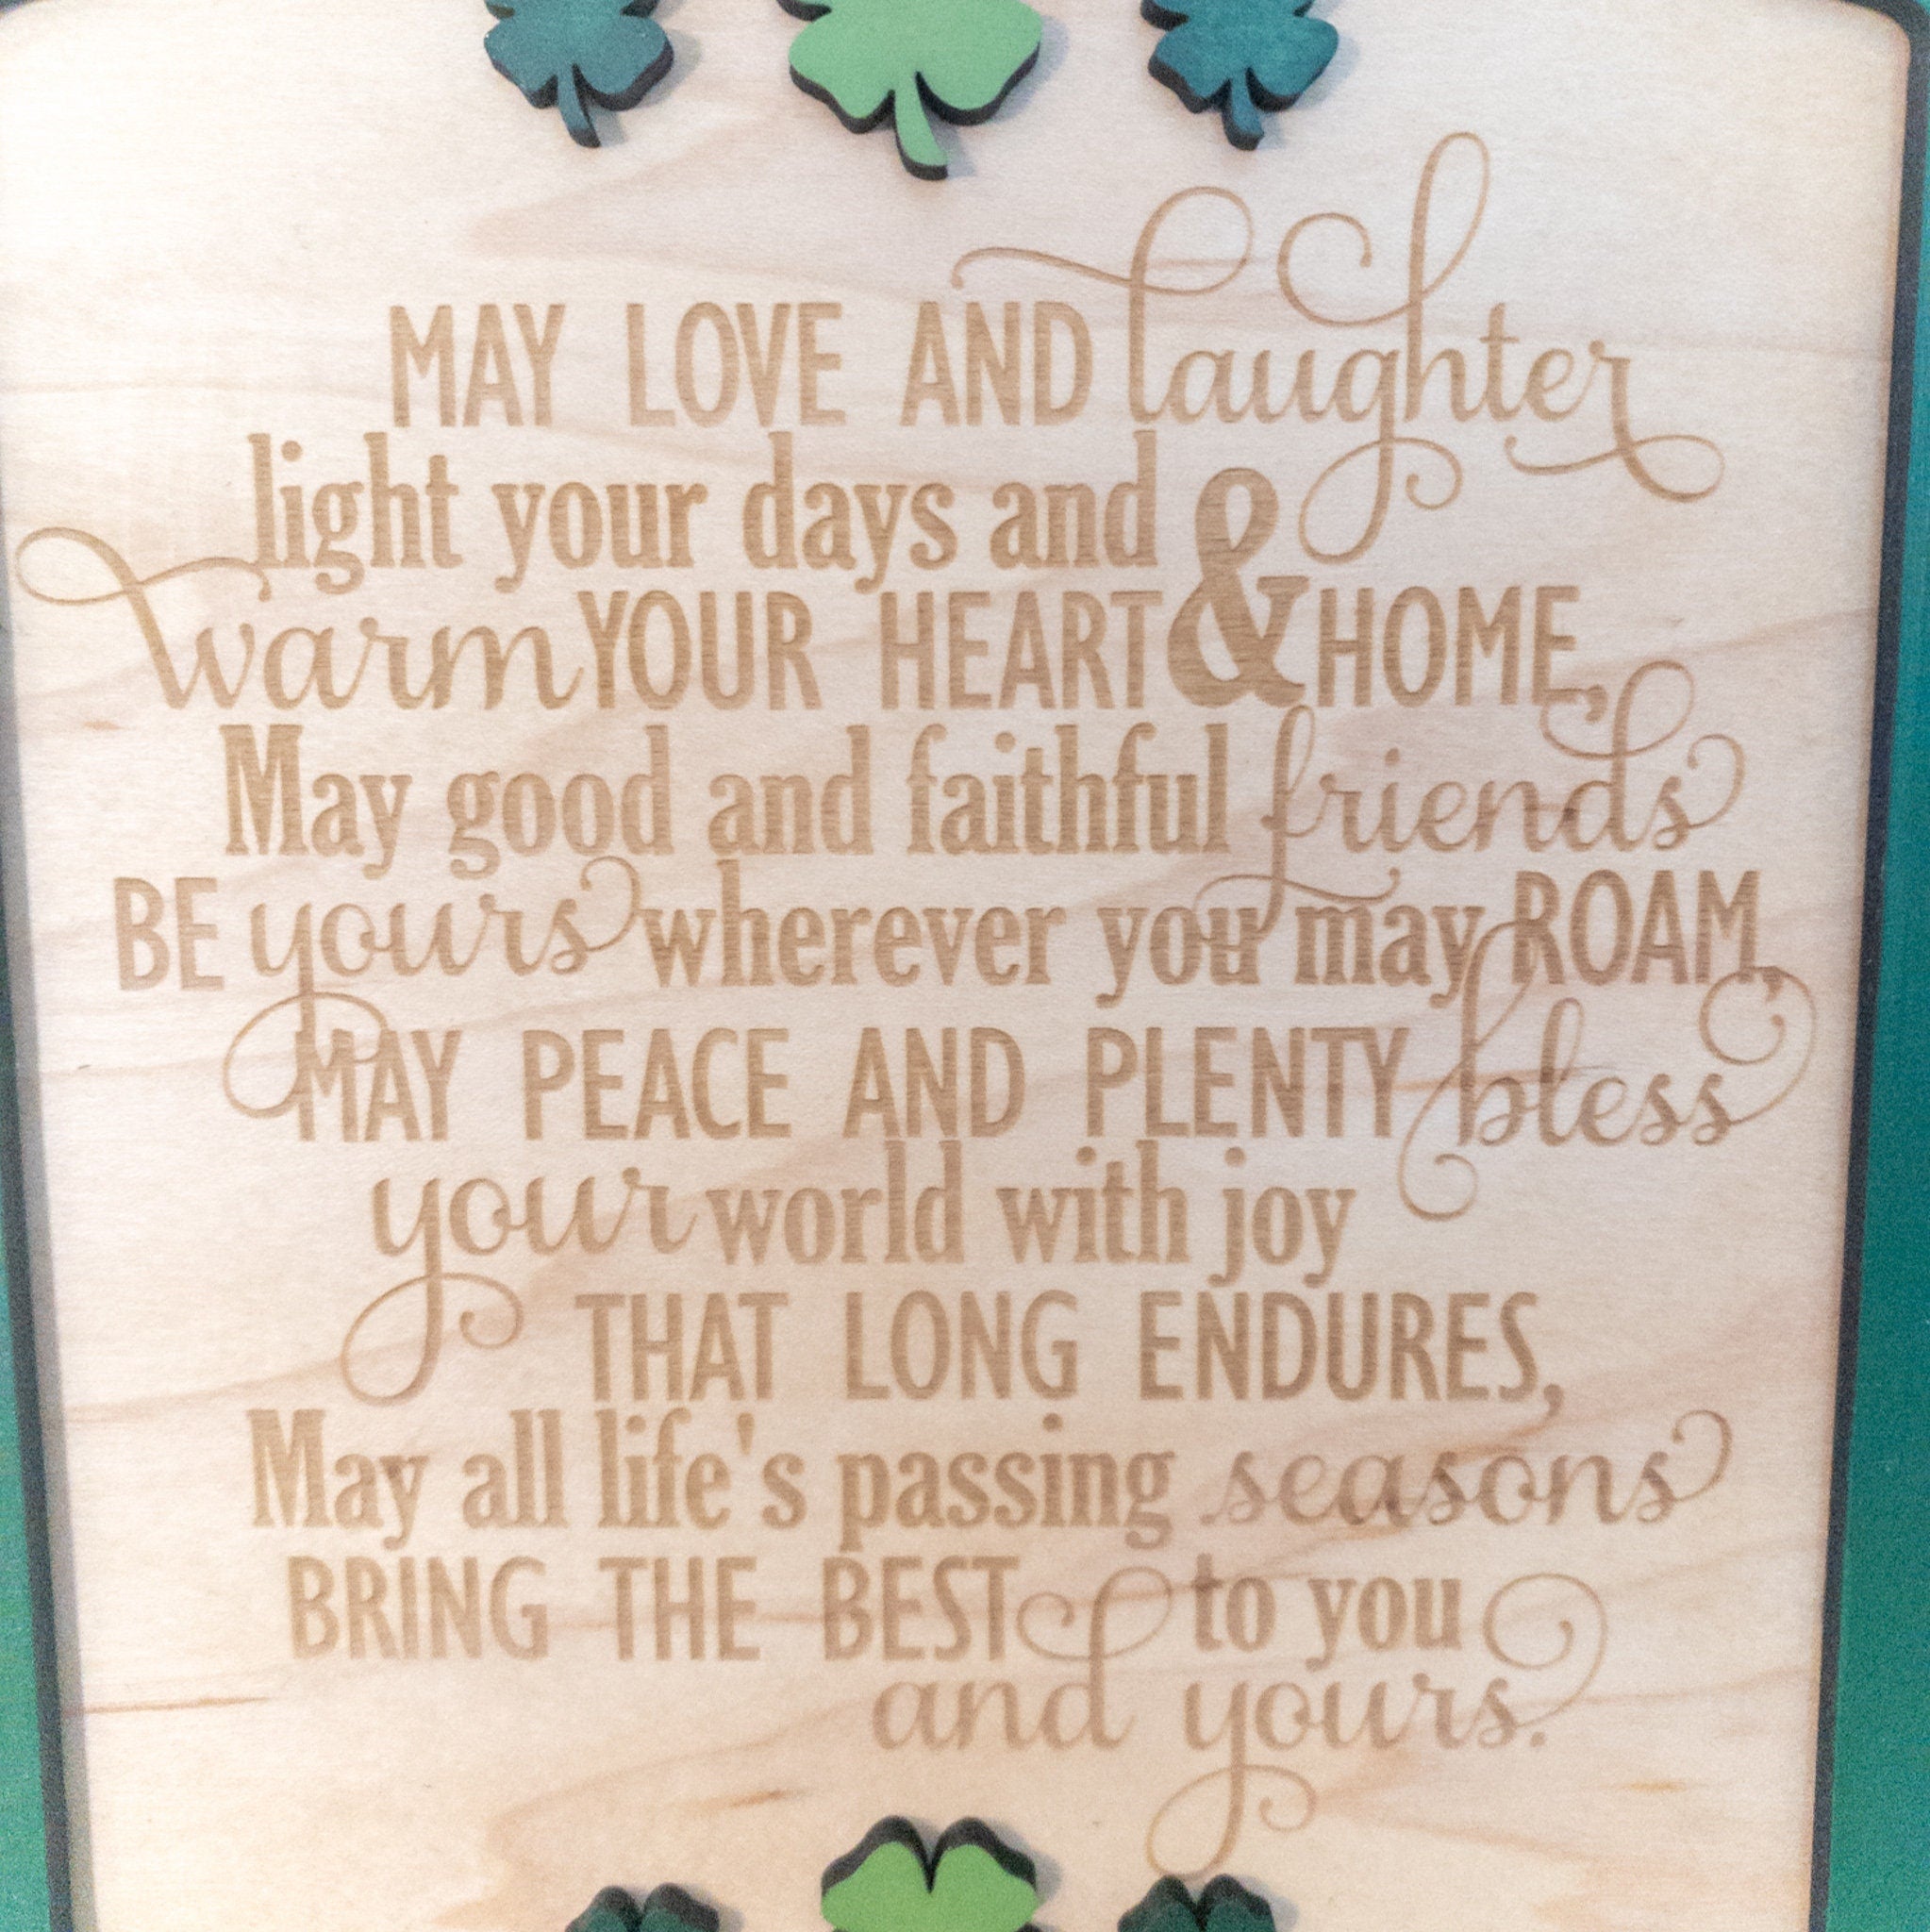 MAY LOVE AND laughter
light your days and
warm YOUR HEART & HOME,
May good and faithful friends
BE yours wherever you may ROAM,
MAY PEACE AND PLENTY bless
your world with joy
THAT LONG ENDURES,
May all life's passing seasons
BRING THE BEST to you
and yours.